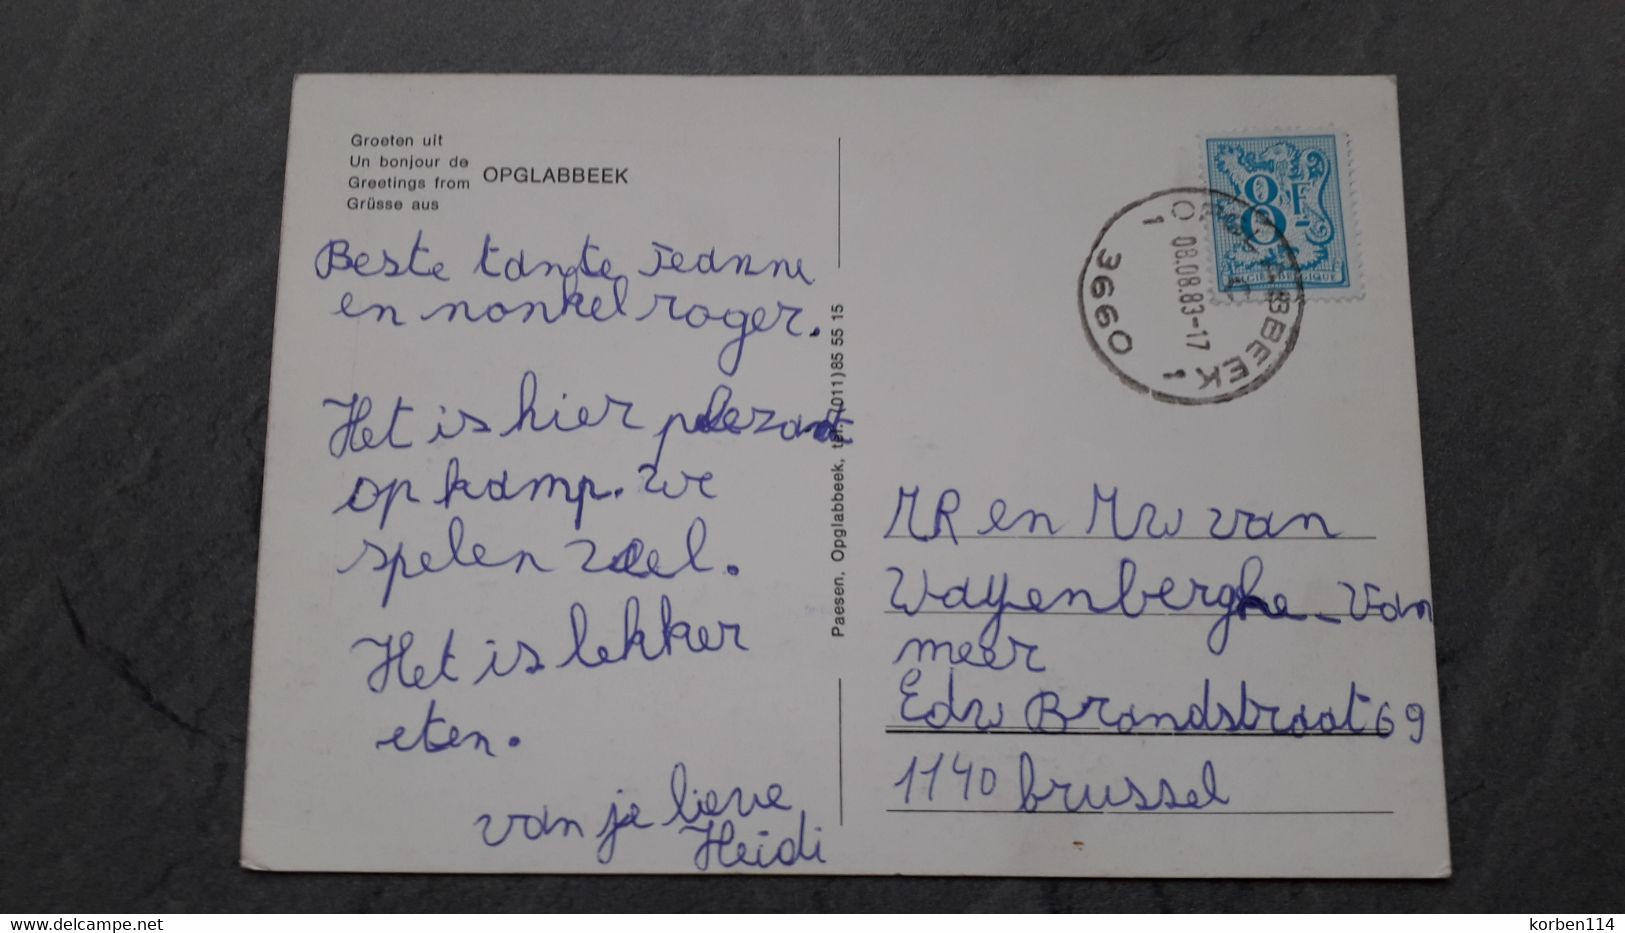 Groeten uit
Un bonjour de
Greetings from
Grüsse aus
OPGLABBEEK
Beste tante Jeanne
en nonkel roger.
Het is hier plezant
op kamp. we
spelen veel.
Het is lekker
eten.
van je lieve
Heidi
Paesen, Opglabbeek, tel. (011) 85 55 15
8F
BELGIE-BELGIQUE
OPGLABBEEK
1 1
08.08.83-17
3660
MR en Mw van
Wayenberghe - Van
meer
Edw Brandstraat 69
1140 brussel
www.delcampe.net
korben114